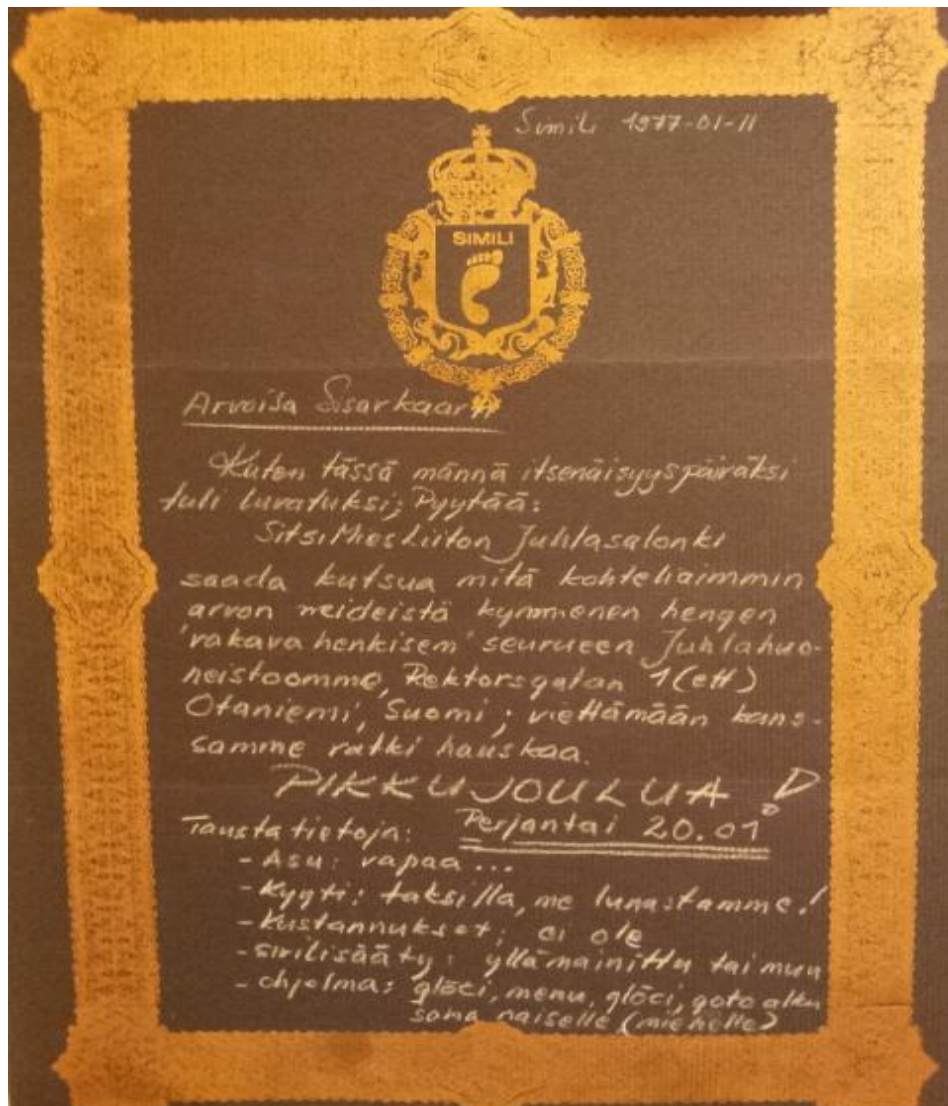 Simili 1977-01-11
SIMILI
Arvoisa Sisarkaarti
Kuten tässä männä itsenäisyyspäiväksi
tuli luvatuksi; Pyytää:
SitsiMiesLiiton Juhlasalonki
saada kutsua mitä kohteliaimmin
arvon neideistä kymmenen hengen
'vakava henkisem' seurueen Juhlahuo-
neistoomme, Rektorsgatan 1(ett)
Otaniemi, Suomi; viettämään kans-
samme ratki hauskaa.
PIKKUJOULUA!
Taustatietoja: Perjantai 20.01
- Asu: vapaa...
- Kyyti: taksilla, me lunastamme!
- Kustannukset; ei ole
- sivilisääty: yllämainittu tai muu
- ohjelma: glöci, menu, glöci, goto alku
sama naiselle (miehelle)